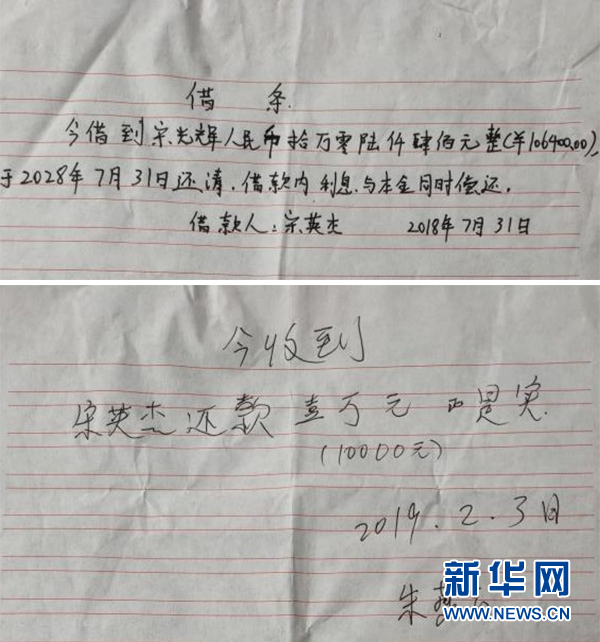 借 条
今借到宋光辉人民币拾万零陆仟肆佰元整(¥106400.00),
于2028年7月31日还清.借款内利息.与本金同时偿还.
借款人:宋英杰 2018年7月31日
今收到
宋英杰还款 壹万元 正是实.
(10000元)
2019.2.3日
朱
新华网
WWW.NEWS.CN